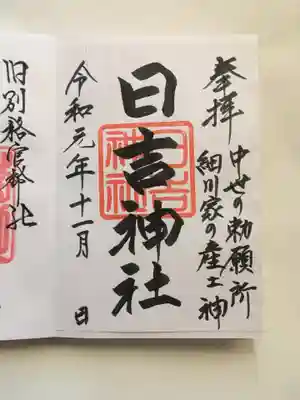 奉拝
中世の勅願所
細川家の産土神
日吉神社
日吉神社
令和元年十一月 日
旧別格官幣社